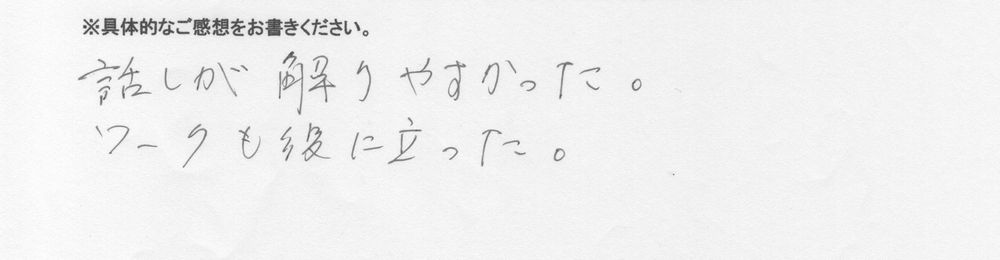 ※具体的なご感想をお書きください。
話しが解りやすかった。
ワークも役に立った。